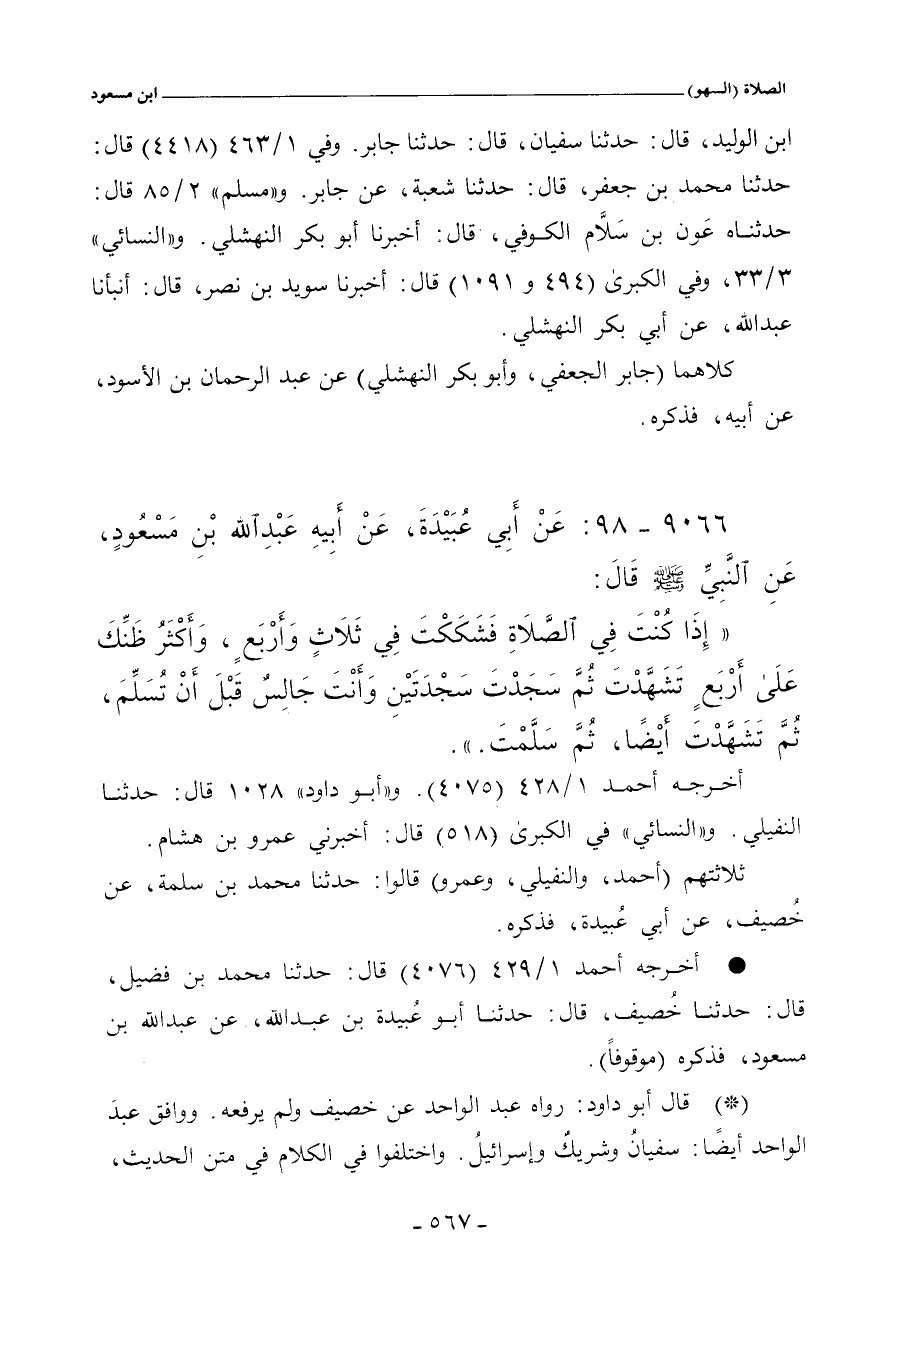 الصلاة (السهو) ابن مسعود
ابن الوليد، قال: حدثنا سفيان، قال: حدثنا جابر. وفي ٤٦٣/١ (٤٤١٨) قال:
حدثنا محمد بن جعفر، قال: حدثنا شعبة، عن جابر. و«مسلم» ٨٥/٢ قال:
حدثنـاه عَون بن سَلَّام الكـوفي، قال: أخبرنا أبو بكر النهشلي. و«النسائي»
٣٣/٣، وفي الكبرىٰ (٤٩٤ و ١٠٩١) قال: أخبرنا سويد بن نصر، قال: أنبأنا
عبدالله، عن أبي بكر النهشلي.
كلاهما (جابر الجعفي، وأبو بكر النهشلي) عن عبد الرحمان بن الأسود،
عن أبيه، فذكره.
٩٠٦٦ - ٩٨: عَنْ أَبِي عُبَيْدَةَ، عَنْ أَبِيهِ عَبْدِٱللهِ بْنِ مَسْعُودٍ،
عَنِ ٱلنَّبِيِّ ﷺ قَالَ:
« إِذَا كُنْتَ فِي ٱلصَّلَاةِ فَشَكَكْتَ فِي ثَلَاثٍ وَأَرْبَعٍ، وَأَكْثَرُ ظَنِّكَ
عَلَىٰ أَرْبَعٍ تَشَهَّدْتَ ثُمَّ سَجَدْتَ سَجْدَتَيْنِ وَأَنْتَ جَالِسٌ قَبْلَ أَنْ تُسَلِّمَ،
ثُمَّ تَشَهَّدْتَ أَيْضًا، ثُمَّ سَلَّمْتَ.».
أخـرجـه أحمـد ٤٢٨/١ (٤٠٧٥). و«أبـو داود» ١٠٢٨ قال: حدثنـا
النفيلي. و«النسائي» في الكبرىٰ (٥١٨) قال: أخبرني عمرو بن هشام.
ثلاثتهم (أحمد، والنفيلي، وعمرو) قالوا: حدثنا محمد بن سلمة، عن
خُصيف، عن أبي عُبيدة، فذكره.
● أخـرجه أحمد ٤٢٩/١ (٤٠٧٦) قال: حدثنا محمد بن فضيل،
قال: حدثنـا خُصيف، قال: حدثنـا أبـو عُبيدة بن عبـدالله، عن عبدالله بن
مسعود، فذكره (موقوفاً).
(*) قال أبو داود: رواه عبد الواحد عن خصيف ولم يرفعه. ووافق عبدَ
الواحد أيضًا: سفيانُ وشريكٌ وإسرائيلُ. واختلفوا في الكلام في متن الحديث،
- ٥٦٧ -